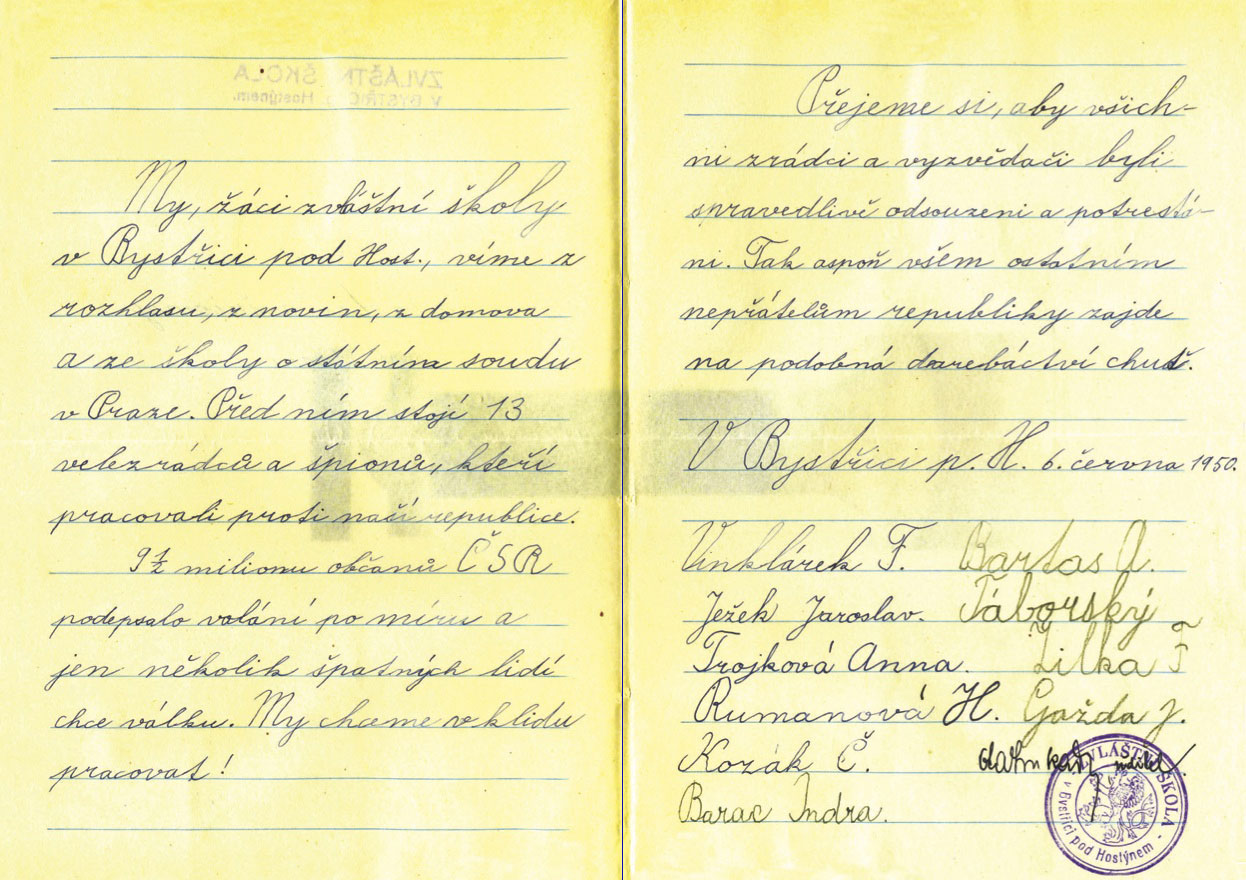 ZVLÁŠTNÍ ŠKOLA
V BYSTŘICI p. Hostýnem.
My, žáci zvláštní školy
v Bystřici pod Host., víme z
rozhlasu, z novin, z domova
a ze školy o státním soudu
v Praze. Před ním stojí 13
velezrádců a špionů, kteří
pracovali proti naší republice.
9½ milionu občanů ČSR
podepsalo volání po míru a
jen několik špatných lidí
chce válku. My chceme v klidu
pracovat!
Přejeme si, aby všich-
ni zrádci a vyzvědači byli
spravedlivě odsouzeni a potrestá-
ni. Tak aspoň všem ostatním
nepřátelům republiky zajde
na podobná darebáctví chuť.
V Bystřici p. H. 6. června 1950.
Vinklárek F. Bartas A.
Ježek Jaroslav. Táborský
Trojková Anna. Žilka F
Rumanová H. Gažda J.
Kozák Č.
Barac Indra.
ZVLÁŠTNÍ ŠKOLA
v Bystřici pod Hostýnem -